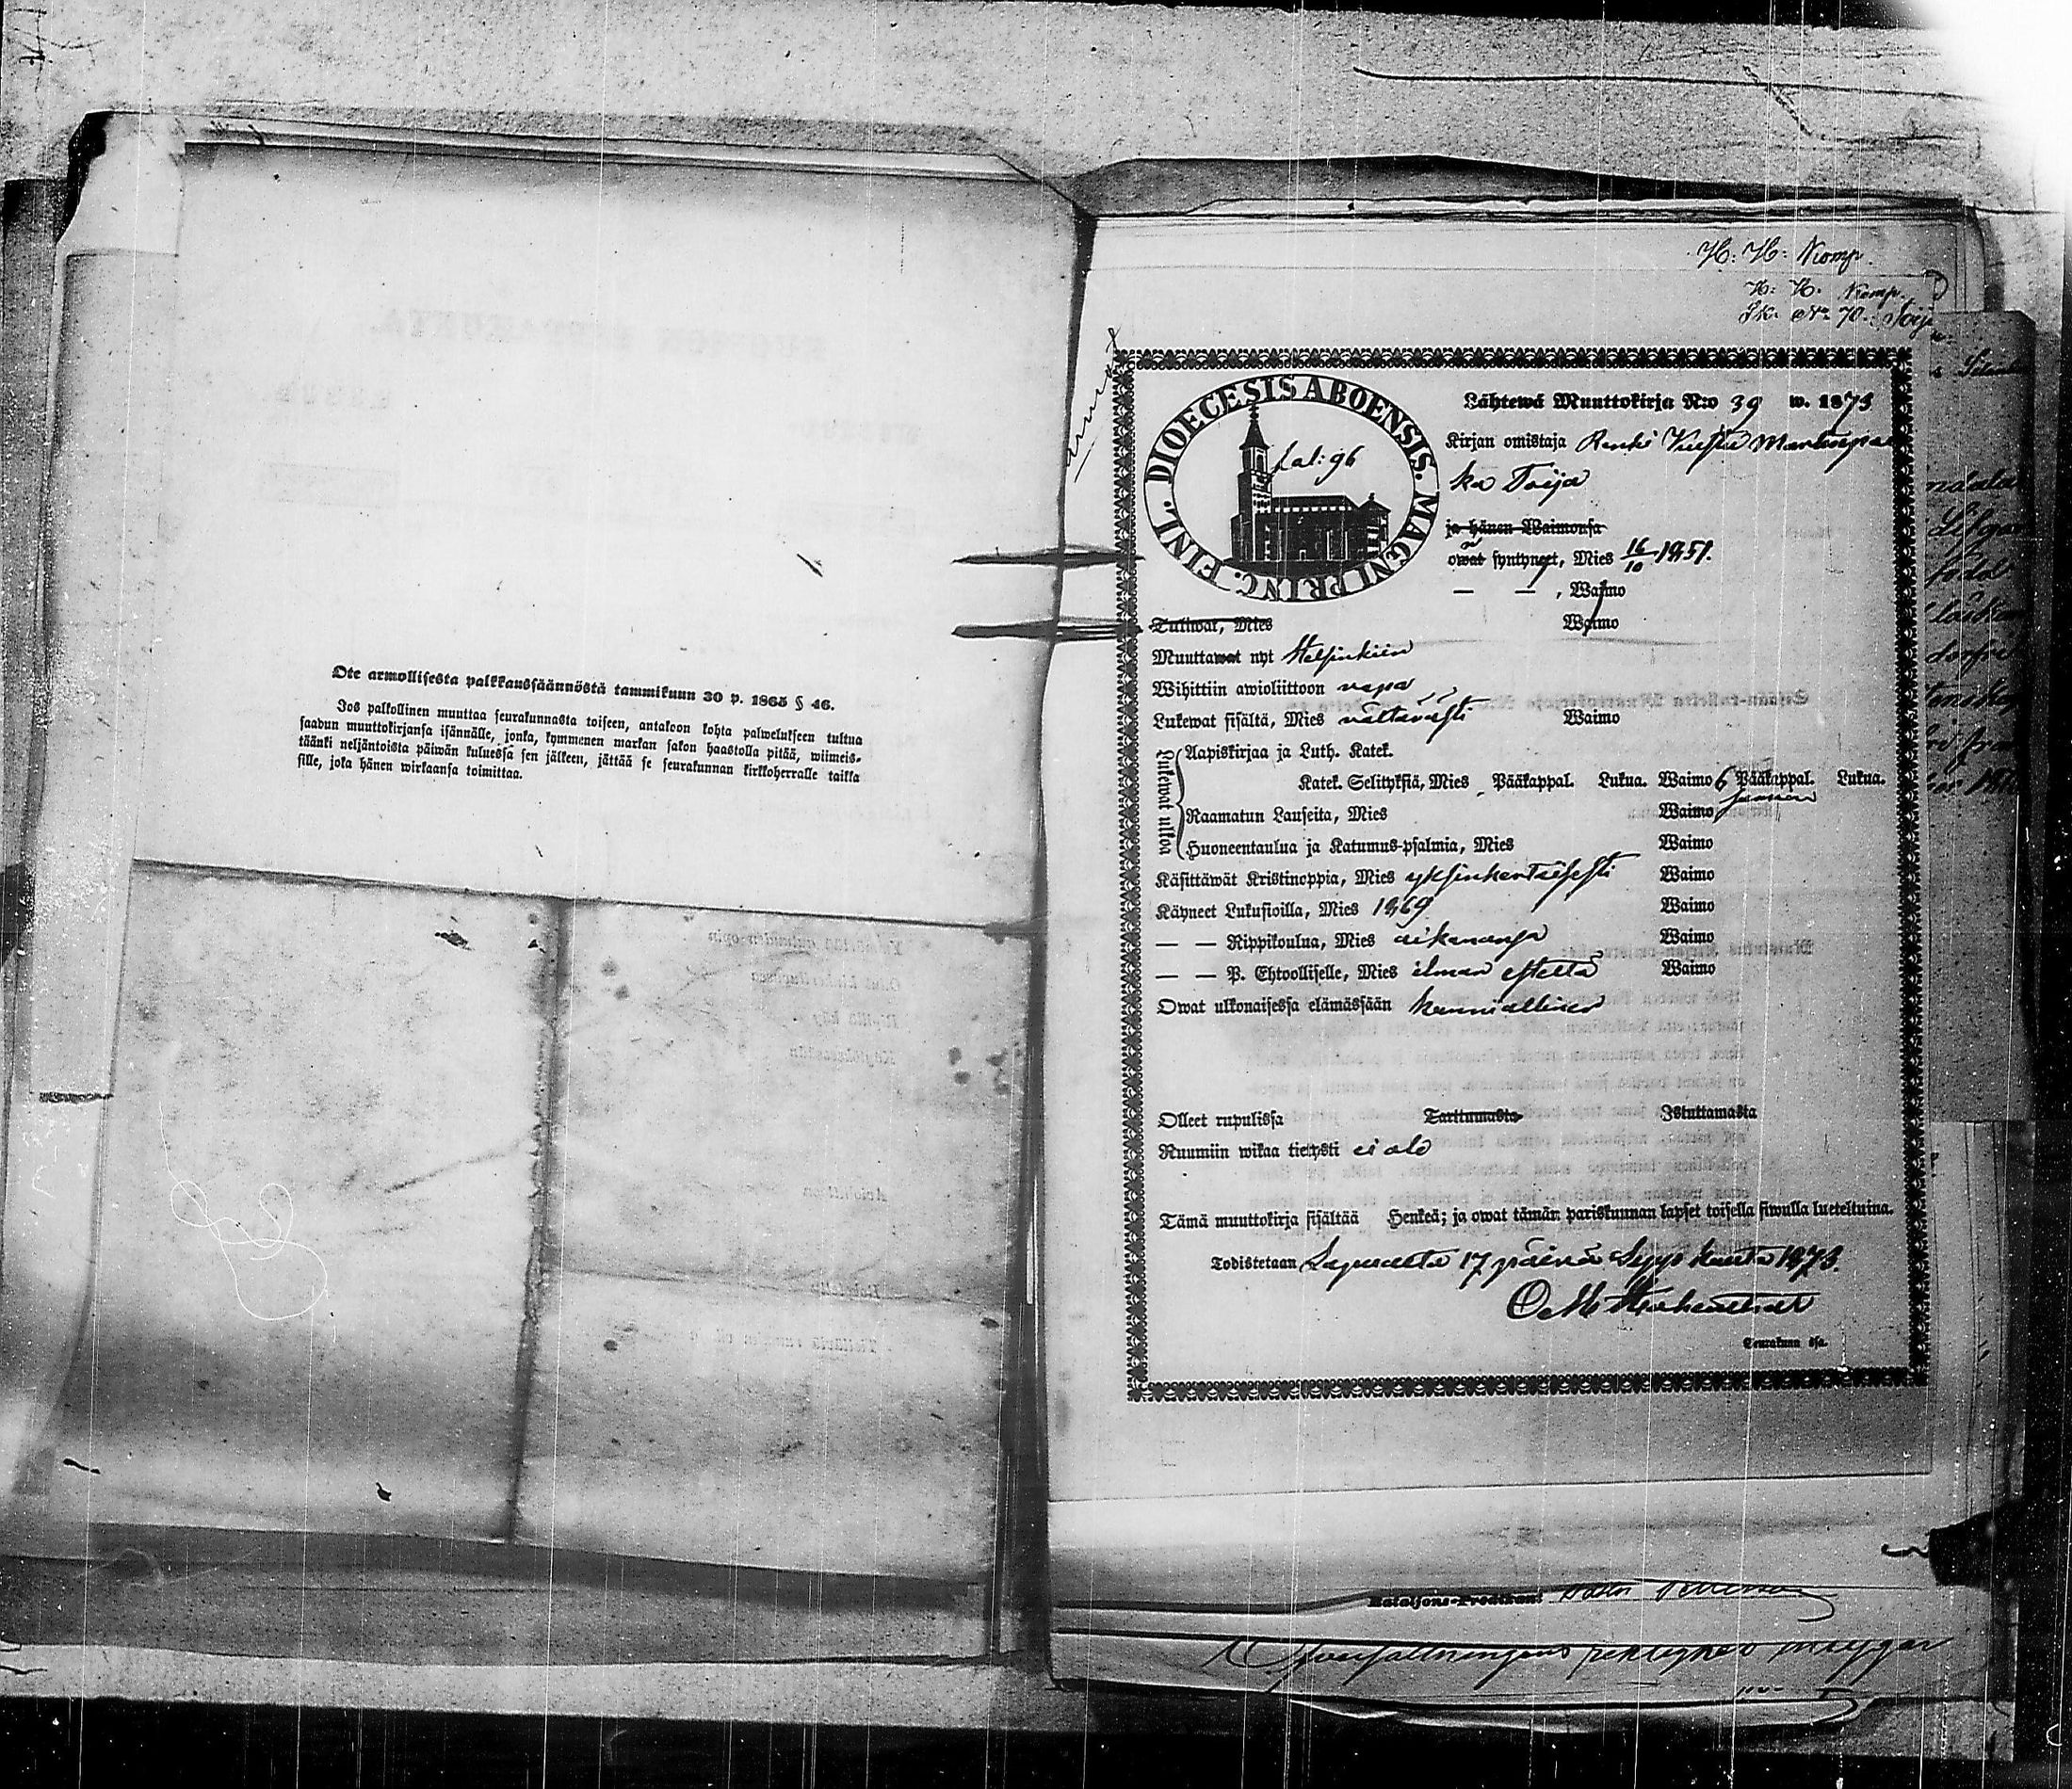 Ote armollisesta palkkaussäännöstä tammikuun 30 p. 1865 § 46.
Jos palkollinen muuttaa seurakunnasta toiseen, antakoon kohta palwelukseen tultua
saadun muuttokirjansa isännälle, jonka, kymmenen markan sakon haastolla pitää, wiimeis-
täänki neljäntoista päiwän kuluessa sen jälkeen, jättää se seurakunnan kirkkoherralle taikka
sille, joka hänen wirkaansa toimittaa.
H: H: Komp.
H: H: Komp.
No 70.
DIOECESIS ABOENSIS. MAGNI PRINC. FINL.
pal: 96
Lähtewä Muuttokirja N:o 39 w. 1873
Kirjan omistaja Renki
ka Toija
ja hänen Waimonsa
owat syntyneet, Mies 16/10 1851.
— — , Waimo
Tuliwat, Mies Waimo
Muuttawat nyt Helsinkiin
Wihittiin awioliittoon vapa
Lukewat sisältä, Mies välttävästi Waimo
Lukewat ulkoa
Aapiskirjaa ja Luth. Katek.
Katek. Selityksiä, Mies Pääkappal. Lukua. Waimo 6 Pääkappal. Lukua.
Raamatun Lauseita, Mies Waimo
Huoneentaulua ja Katumus-psalmia, Mies Waimo
Käsittäwät Kristinoppia, Mies yksinkertaisesti Waimo
Käyneet Lukusioilla, Mies 1869 Waimo
— — Rippikoulua, Mies aikanansa Waimo
— — P. Ehtoolliselle, Mies ilman estettä Waimo
Owat ulkonaisessa elämässään kunniallinen
Olleet rupulissa Tarttumasta Istuttamasta
Ruumiin wikaa tietysti ei ole
Tämä muuttokirja sisältää Henkeä; ja owat tämän pariskunnan lapset toisella siwulla lueteltuina.
Todistetaan 17 päivä Syyskuuta 1873.
Seurakunn isa.
Bataljons-Predikant